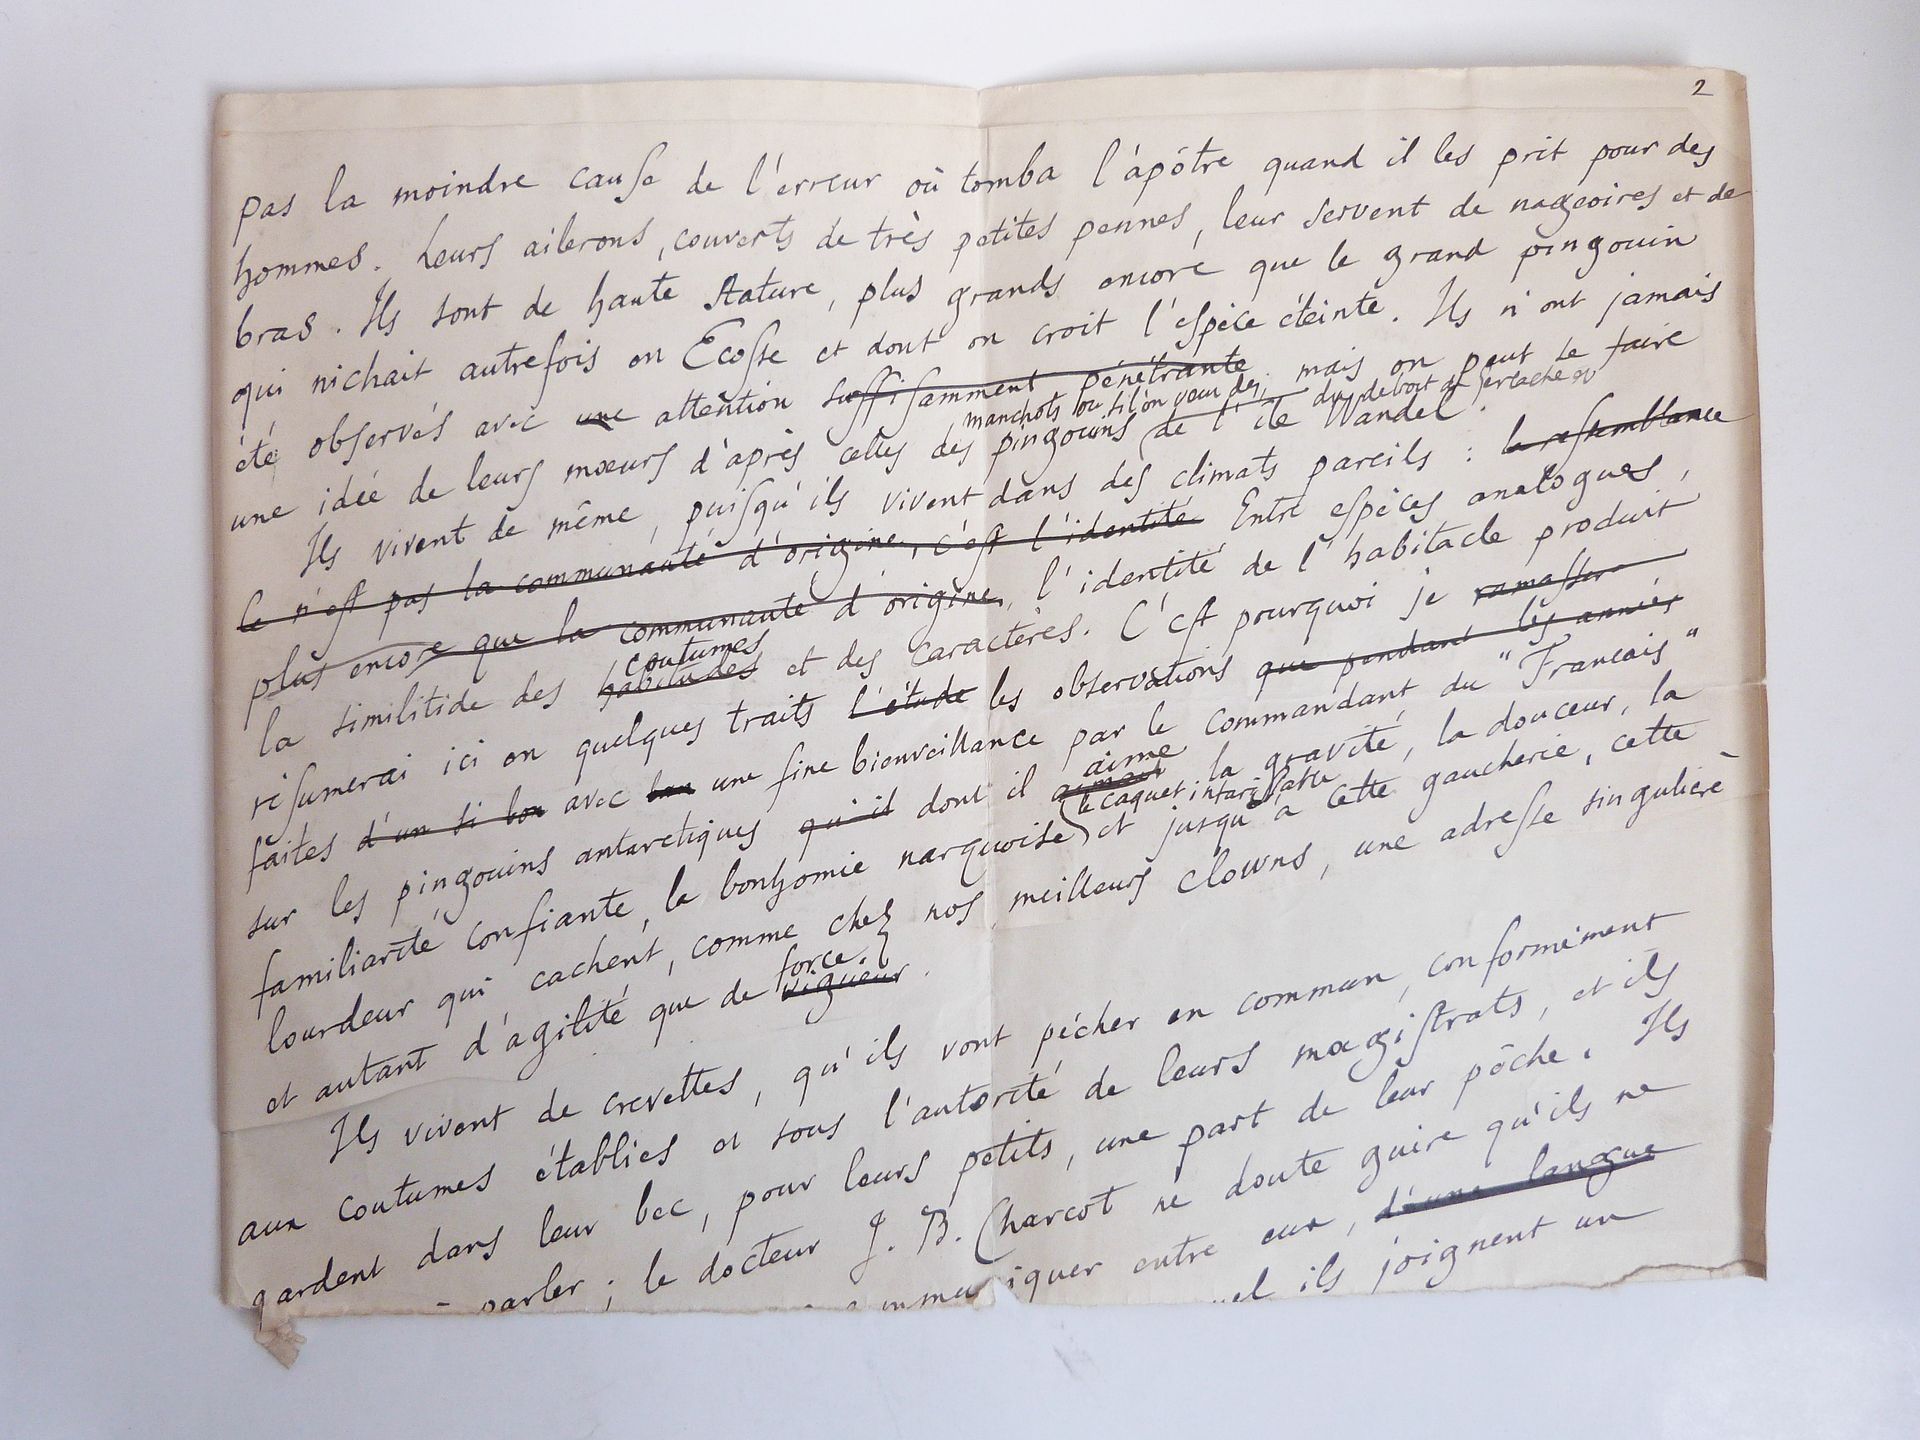 2
pas la moindre cause de l'erreur où tomba l'apôtre quand il les prit pour des
hommes. Leurs ailerons, couverts de très petites pennes, leur servent de nageoires et de
bras. Ils sont de haute stature, plus grands encore que le grand pingouin
qui nichait autrefois en Ecosse et dont on croit l'espèce éteinte. Ils n'ont jamais
été observés avec une attention suffisamment pénétrante, mais on peut se faire
manchots ou si l'on veut des du detroit de Gerlache ou
une idée de leurs mœurs d'après celles des pingouins de l'île Wandel.
Ils vivent de même, puisqu'ils vivent dans des climats pareils : la ressemblance
Ce n'est pas la communauté d'origine, c'est l'identité Entre espèces analogues,
plus encore que la communauté d'origine, l'identité de l'habitacle produit
coutumes
la similitide des habitudes et des caractères. C'est pourquoi je ramasser
résumerai ici en quelques traits l'étude les observations que pendant les années
faites d'un si bon avec une fine bienveillance par le commandant du "Francais"
aime
sur les pingouins antarctiques qu'il dont il la gravité, la douceur, la
le caquet intarissable
familiarité confiante, la bonhomie narquoise et jusqu'à cette gaucherie, cette
lourdeur qui cachent, comme chez nos meilleurs clowns, une adresse singulière
force.
et autant d'agilité que de vigueur.
Ils vivent de crevettes, qu'ils vont pêcher en commun, conformément
aux coutumes établies et sous l'autorité de leurs magistrats, et ils
gardent dans leur bec, pour leurs petits, une part de leur pêche. Ils
parler ; le docteur J. B. Charcot ne doute guère qu'ils ne
communiquer entre eux, d'une langue
ils joignent un